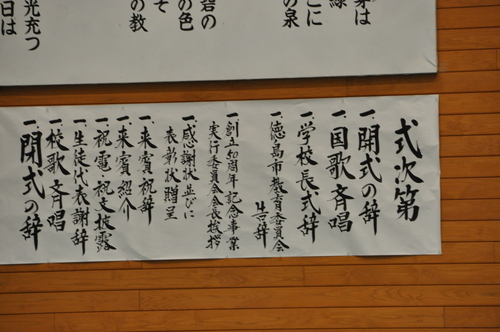 式次第
一、開式の辞
一、国歌斉唱
一、学校長式辞
一、徳島市教育委員会
告辞
一、創立50周年記念事業
実行委員会会長挨拶
一、感謝状並びに
表彰状贈呈
一、来賓祝辞
一、来賓紹介
一、祝電祝文披露
一、生徒代表謝辞
一、校歌斉唱
一、閉式の辞
は
緑
こに
の泉
碧の
の色
そ
の教
光充つ
日は